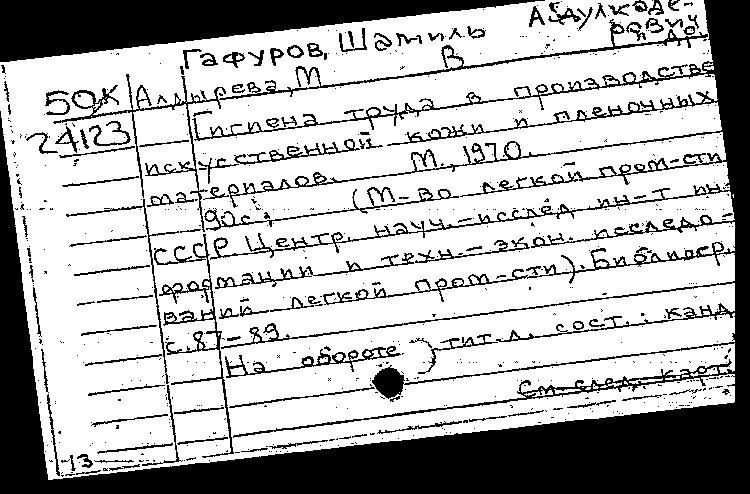 Гафуров, Шамиль Абдулкаде-
рович и др.
50К Алдырева, М В
24123 Гигиена труда в производстве
искусственной кожи и пленочных
материалов. М., 1970.
90с; (М-во легкой пром-сти
СССР. Центр. науч.-исслед. ин-т ин-
формации и техн.-экон. исследо-
ваний легкой пром-сти). Библиогр.
с. 87-89.
На обороте тит. л. сост.: канд
См. след. карт.
13